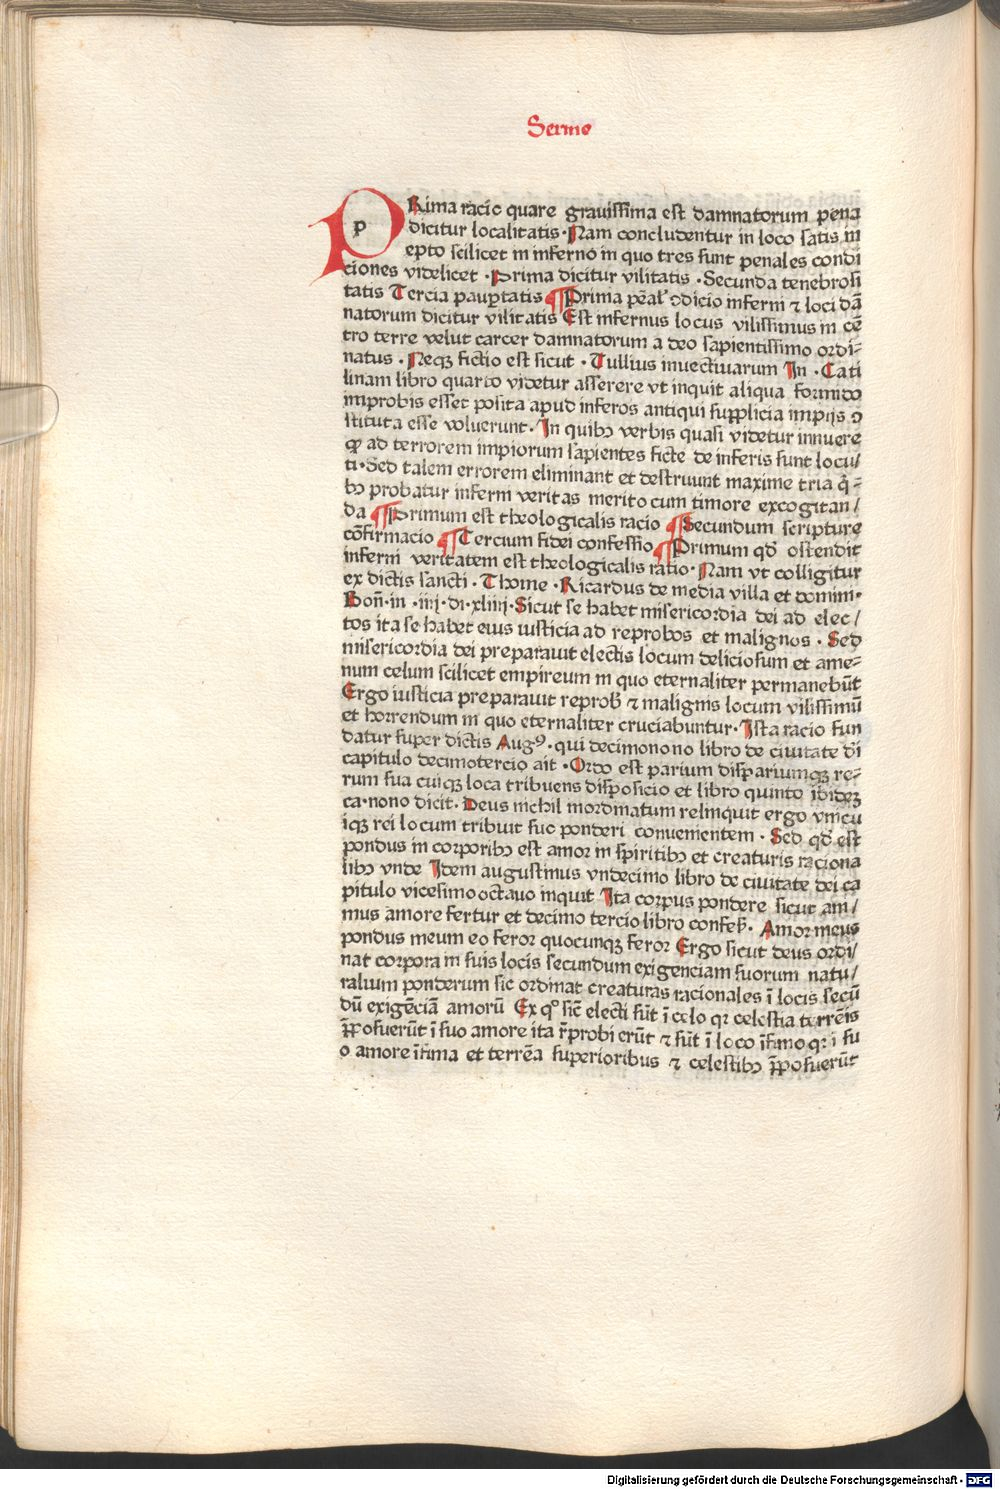 Sermo
PRima racio quare grauissima est damnatorum pena
dicitur localitatis · Nam concludentur in loco satis in
epto scilicet in inferno in quo tres sunt penales condi
ciones videlicet · Prima dicitur vilitatis · Secunda tenebrosi
tatis Tercia paup̱tatis ¶ Prima pēal' ꝯdicio inferni ⁊ loci dā
natorum dicitur vilitatis Est infernus locus vilissimus in cē
tro terre velut carcer damnatorum a deo sapientissimo ordi⸗
natus · Neqꝫ fictio est sicut · Tullius inuectiuarum In · Cati
linam libro quarto videtur asserere vt inquit aliqua formido
improbis esset posita apud inferos antiqui supplicia impijs ꝯ
stituta esse voluerunt · In quibꝰ verbis quasi videtur innuere
ꝙ ad terrorem impiorum sapientes ficte de inferis sunt locu/
ti · Sed talem errorem eliminant et destruunt maxime tria q̄⸗
bꝰ probatur inferni veritas merito cum timore excogitan/
da ¶ Primum est theologicalis racio ¶ Secundum scripture
cōfirmacio ¶ Tercium fidei confessio ¶ Primum qd̄ ostendit
inferni veritatem est theologicalis ratio · Nam vt colligitur
ex dictis sancti · Thome · Ricardus de media villa et domini ·
Bon̄ · in · iiij · di · xliiij · Sicut se habet misericordia dei ad elec/
tos ita se habet eius iusticia ad reprobos et malignos · Sed
misericordia dei preparauit electis locum deliciosum et ame⸗
num celum scilicet empireum in quo eternaliter permanebūt
Ergo iusticia preparauit reprob' ⁊ malignis locum vilissimū
et horrendum in quo eternaliter cruciabuntur · Ista racio fun
datur super dictis Augꝰ · qui decimonono libro de ciuitate d̄i
capitulo decimotercio ait · Ordo est parium dispariumqꝫ re⸗
rum sua cuiqꝫ loca tribuens disposicio et libro quinto ibidem
ca · nono dicit · Deus nichil inordinatum relinquit ergo vnicu
iqꝫ rei locum tribuit suo ponderi conuenientem · Sed qd̄ est
pondus in corporibꝰ est amor in spiritibꝰ et creaturis raciona
libꝰ vnde Idem augustinus vndecimo libro de ciuitate dei ca
pitulo vicesimo octauo inquit Ita corpus pondere sicut ani/
mus amore fertur et decimo tercio libro confes' · Amor meus
pondus meum eo feror quocunqꝫ feror Ergo sicut deus ordi/
nat corpora in suis locis secundum exigenciam suorum natu/
ralium ponderum sic ordinat creaturas racionales ī locis secū
dū exigēciā amorū Ex qͦ sic̄ electi sūt ī celo qꝛ celestia terrēis
p̄posuerūt ī suo amore ita r̄probi erūt ⁊ sūt ī loco īfimo qꝛ ī su
o amore īfima et terrēa superioribus ⁊ celestibꝰ p̄posuerūt
Digitalisierung gefördert durch die Deutsche Forschungsgemeinschaft - DFG